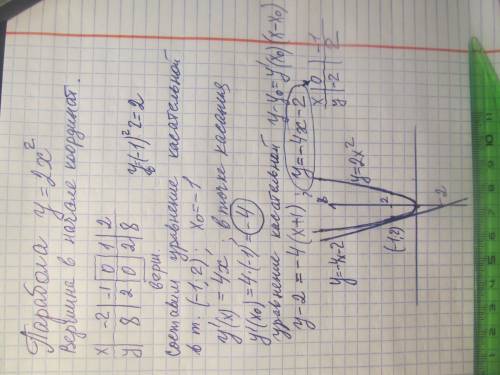 Парабола y=2x²
Вершина в начале координат.
x | -2 | -1 | 0 | 1 | 2
y | 8 | 2 | 0 | 2 | 8
верш.
y=(-1)²·2=2
Составим уравнение касательной
в т. (-1,2); x₀=-1
y'(x)=4x; в точке касания
y'(x₀)=4·(-1)=-4
уравнение касательной y-y₀=y'(x₀)(x-x₀)
y-2=-4(x+1); y=-4x-2
x | 0 | -1
y | -2 | 2
y=-4x-2
8
y=2x²
(-1,2)
2
-2